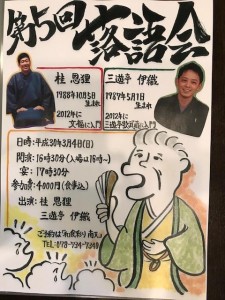 第5回 落語会
桂 恩狸
1988年10月5日
生まれ
2012年に
文福に入門
三遊亭 伊織
1989年5月1日
生まれ
2012年に
三遊亭歌武蔵に入門
日時:平成30年3月4日(日)
開演:16時30分(入場は16時〜)
宴:17時30分
参加費:4000円(食事込)
出演:桂 恩狸
三遊亭 伊織